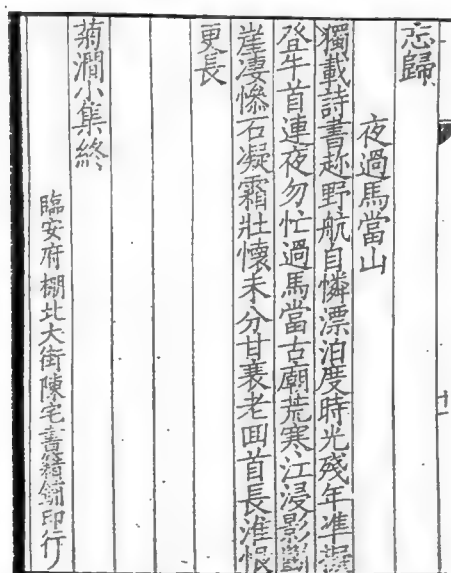 十一
忘歸
夜過馬當山
獨載詩書趂野航自憐漂泊度時光殘年准擬
登牛首連夜勿忙過馬當古廟荒寒江浸影斷
崖凄慘石凝霜壯懷未分甘衰老回首長淮恨
更長
菊澗小集終
臨安府棚北大街陳宅書籍鋪印行